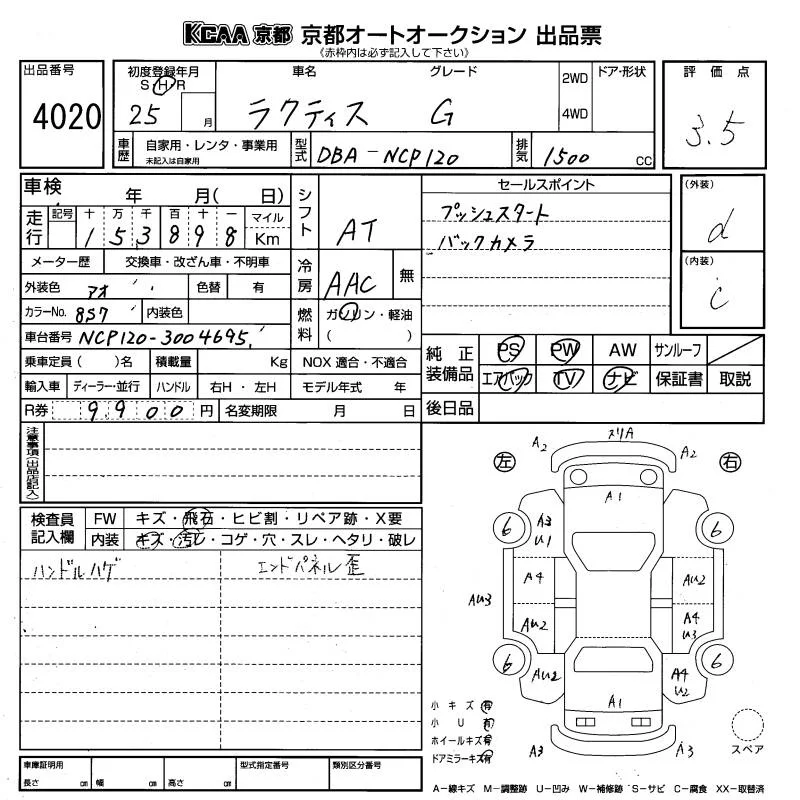 KCAA 京都 京都オートオークション 出品票
《赤枠内は必ず記入して下さい》
出品番号
4020
初度登録年月
S・H・R
25 月
車名
ラクティス
グレード
G
2WD
4WD
ドア・形状
評価点
3.5
車歴
自家用・レンタ・事業用
未記入は自家用
型式
DBA-NCP120
排気
1500 CC
車検 年 月( 日)
走行
記号 十 万 千 百 十 一 マイル
1 5 3 8 9 8 Km
メーター歴 交換車・改ざん車・不明車
外装色 アオ 色替 有
カラーNo. 8S7 内装色
車台番号 NCP120-3004695
乗車定員( )名 積載量 Kg
輸入車 ディーラー・並行 ハンドル 右H・左H
R券 9,900 円 名変期限 月 日
シフト
AT
冷房
AAC 無
燃料
ガソリン・軽油
( )
NOX 適合・不適合
モデル年式 年
セールスポイント
プッシュスタート
バックカメラ
(外装)
d
(内装)
c
純正装備品
PS PW AW サンルーフ
エアバック TV ナビ 保証書 取説
後日品
注意事項(出品店記入)
検査員記入欄
FW キズ・飛石・ヒビ割・リペア跡・X要
内装 キズ・汚レ・コゲ・穴・スレ・ヘタリ・破レ
ハンドルハゲ
エンドパネル歪
左
右
A2 スリA A2
A1
6 A3 U1 6
A4 AU2
AU3
AU2 A4 U3
6 AU2 A4 U2 6
A1
A3 A3
小キズ 有
小 U 有
ホイールキズ 有
ドアミラーキズ 有
スペア
車庫証明用
長さ cm 幅 cm 高さ cm
型式指定番号
類別区分番号
A-線キズ M-調整跡 U-凹み W-補修跡 S-サビ C-腐食 XX-取替済